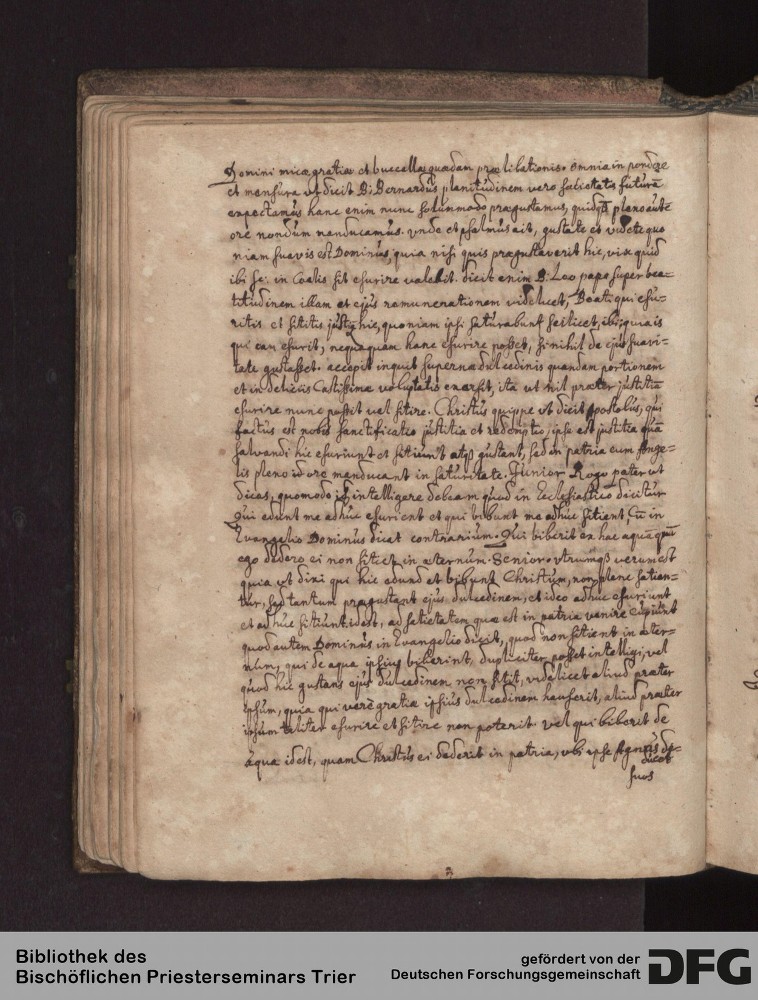 Domini micæ gratiæ et buccellæ quædam prælibationis. omnia in pondere
et mensura ut dicit B: Bernardus plenitudinem vero societatis futurā
expectamus hanc enim nunc solummodo prægustamus, quidq̄ pleno autē
ore nondum manducamus. vnde et psalmus ait, gustate et videte quo
niam suavis est Dominus, quia nisi quis prægustaverit hic, vix quid
ibi sc: in Coelis sit esurire valebit. dicit enim B: Leo papa super bea=
titudinem illam et ejus remunerationem videlicet, Beati qui esu=
ritis et sititis justitiā hic, quoniam ipsi saturabunt̄ scilicet, ibi, quia is
qui eam esurit, nequaquam hanc esurire posset, si nihil de ejus suavi=
tate gustasset. accepit inquit supernæ dulcedinis quandam portionem
et in delicias Castissimæ voluptatis exarsit, ita ut nil præter justitiā
esurire nunc possit vel sitire. Christus quippe ut dicit Apostolus, qui
factus est nobis sanctificatio justitia et redemptio, ipse est justitia quā
salvandi hic esuriunt et sitiunt atq̨ gustant, sed in patria cum Ange=
lis pleno ore manducant in saturitate. Junior Rogo pater ut
dicas, quomodo id intelligere debeam quod in Ecclesiastico dicitur
Qui edunt me adhuc esurient et qui bibunt me adhuc sitient, cū in
Evangelio Dominus dicat contrarium. Qui biberit ex hac aqua quā
ego dedero ei non sitiet in æternum. Senior. vtrumq̨ verum est
quia ut dixi qui hic edunt et bibunt Christum, non plene satien=
tur, sed tantum prægustant ejus dulcedinem, et ideo adhuc esuriunt
et adhuc sitiunt idest, ad satietatem quæ est in patria venire cupiunt
quod autem Dominus in Evangelio dicit, quod non sitient in æter=
num, qui de aqua ipsius biberint, dupliciter posset intelligi, vel
quod hic gustans ejus dulcedinem non sitit, videlicet aliud præter
ipsum, quia qui verè gratiæ ipsius dulcedinem hauserit, aliud præter
ipsum taliter esurire et sitire non poterit. vel qui biberit de
aqua idest, quam Christus ei dederit in patria, vbi ipse Agnus
suos
Bibliothek des
Bischöflichen Priesterseminars Trier
gefördert von der
Deutschen Forschungsgemeinschaft
DFG